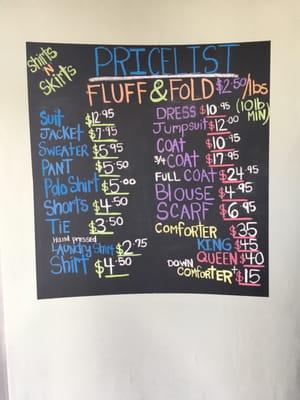 Shirts
N
Skirts
PRICELIST
FLUFF & FOLD $2.50/lbs
(10lb MIN)
Suit $12.95
JACKET $7.95
SWEATER $5.95
PANT $5.50
Polo Shirt $5.00
Shorts $4.50
TIE $3.50
Hand pressed
Laundry Shirt $2.75
Shirt $4.50
DRESS $10.95
Jumpsuit $12.00
COAT $10.95
3/4 COAT $17.95
FULL COAT $24.95
BLOUSE $4.95
SCARF $6.95
COMFORTER $35
KING $45
QUEEN $40
DOWN COMFORTER + $15